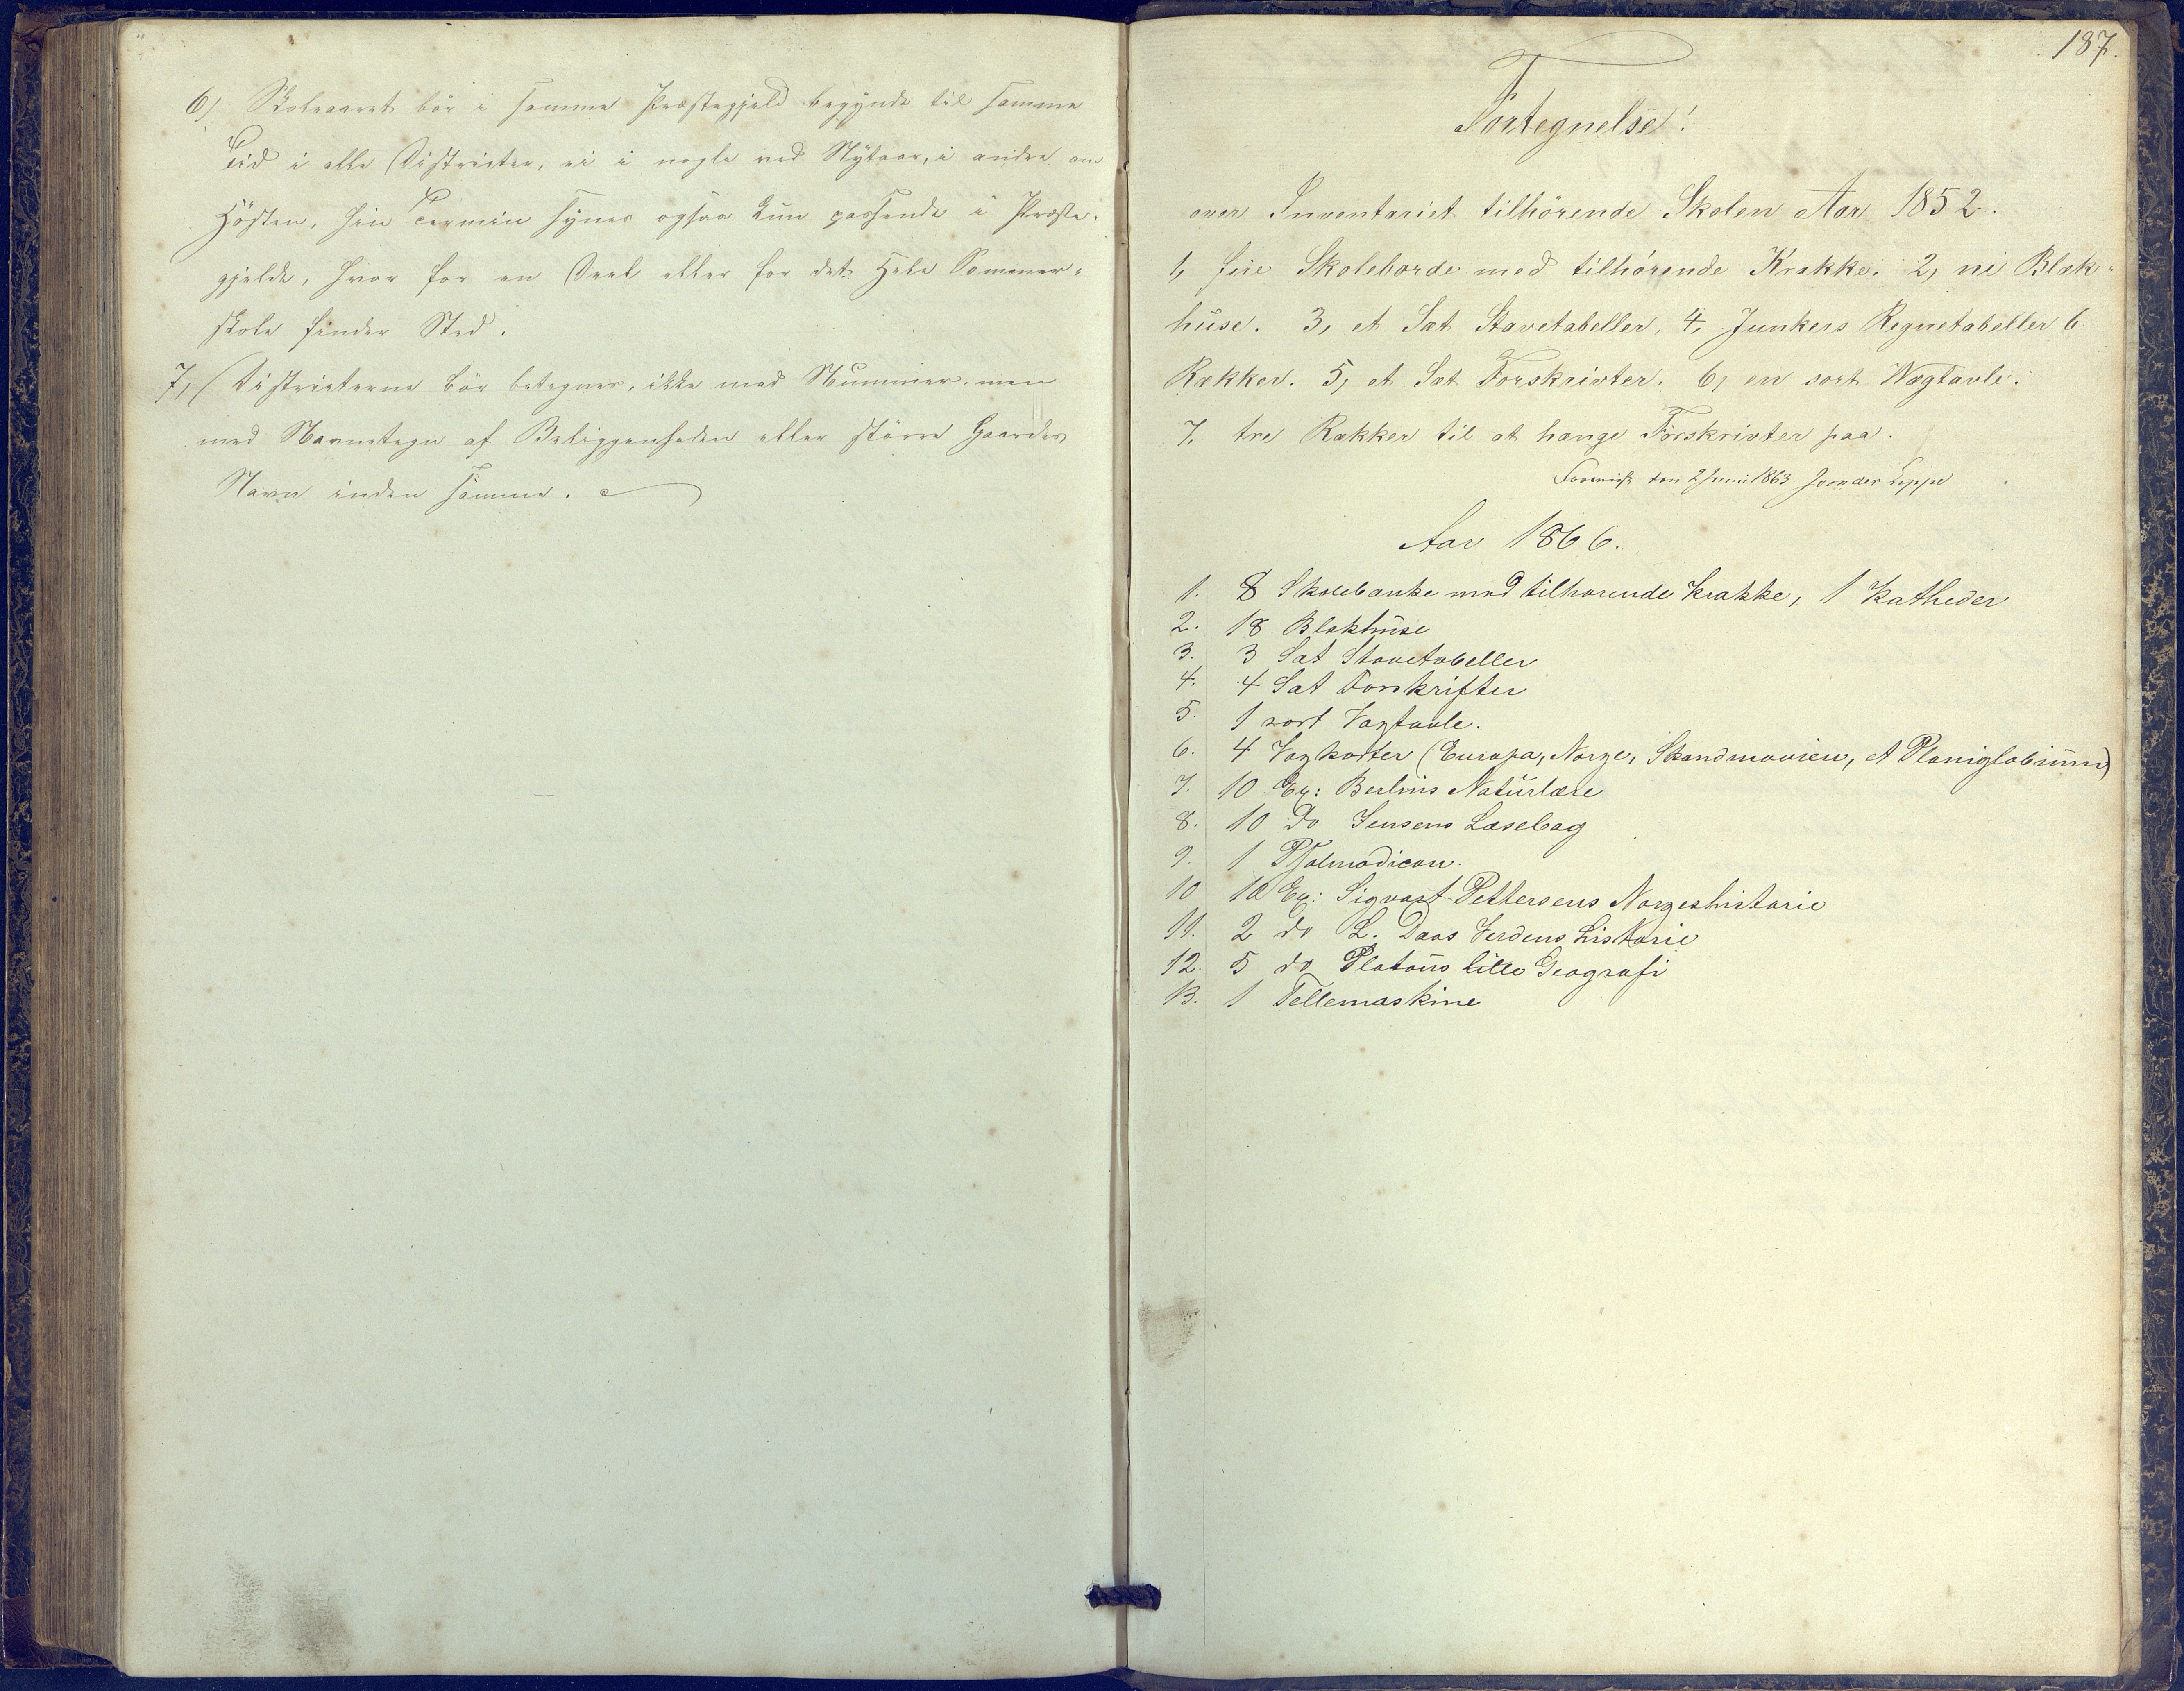 6) Skoleaaret bör i samme Præstegjeld begynde til samme
Tid i alle Districter, ei i nogle ved Nytaar, i andre om
Hösten, hin Termin synes ogsaa kun passende i Præste-
gjelde, hvor for en Deel eller for det Hele Sommer-
skole finder Sted.
7, Districterne bör betegnes, ikke med Nummer, men
med Navnetegn af Beliggenheden eller större Gaardes
Navn inden samme.
187.
Fortegnelse!
over Inventariet tilhörende Skolen Aar 1852.
1, fire Skoleborde med tilhörende Krakke. 2, ni Blæk-
huse. 3, et Sæt Stavetabeller, 4, Junkers Regnetabeller 6
Rækker. 5, et Sæt Forskrivter. 6, en sort Vægtavle.
7, tre Rækker til at hænge Forskrivter paa.
den 2 Juni 1863. J von der Lippe
Aar 1866.
1. 8 Skolebænke med tilhørende Krakke, 1 Katheder
2. 18 Blækhuse
3. 3 Sæt Stavetabeller
4. 4 Sæt Forskrifter
5. 1 sort Vægtavle.
6. 4 Vægkorter (Europa, Norge, Skandinavien, et Planiglobium)
7. 10 Ex: Berlins Naturlære
8. 10 do Jensens Læsebog
9. 1 Psalmodicon.
10 10 Ex: Sigvart Pettersens Norgeshistorie
11. 2 do L. Daas Verdens historie
12. 5 do Platous lille Geografi
13. 1 Tellemaskine